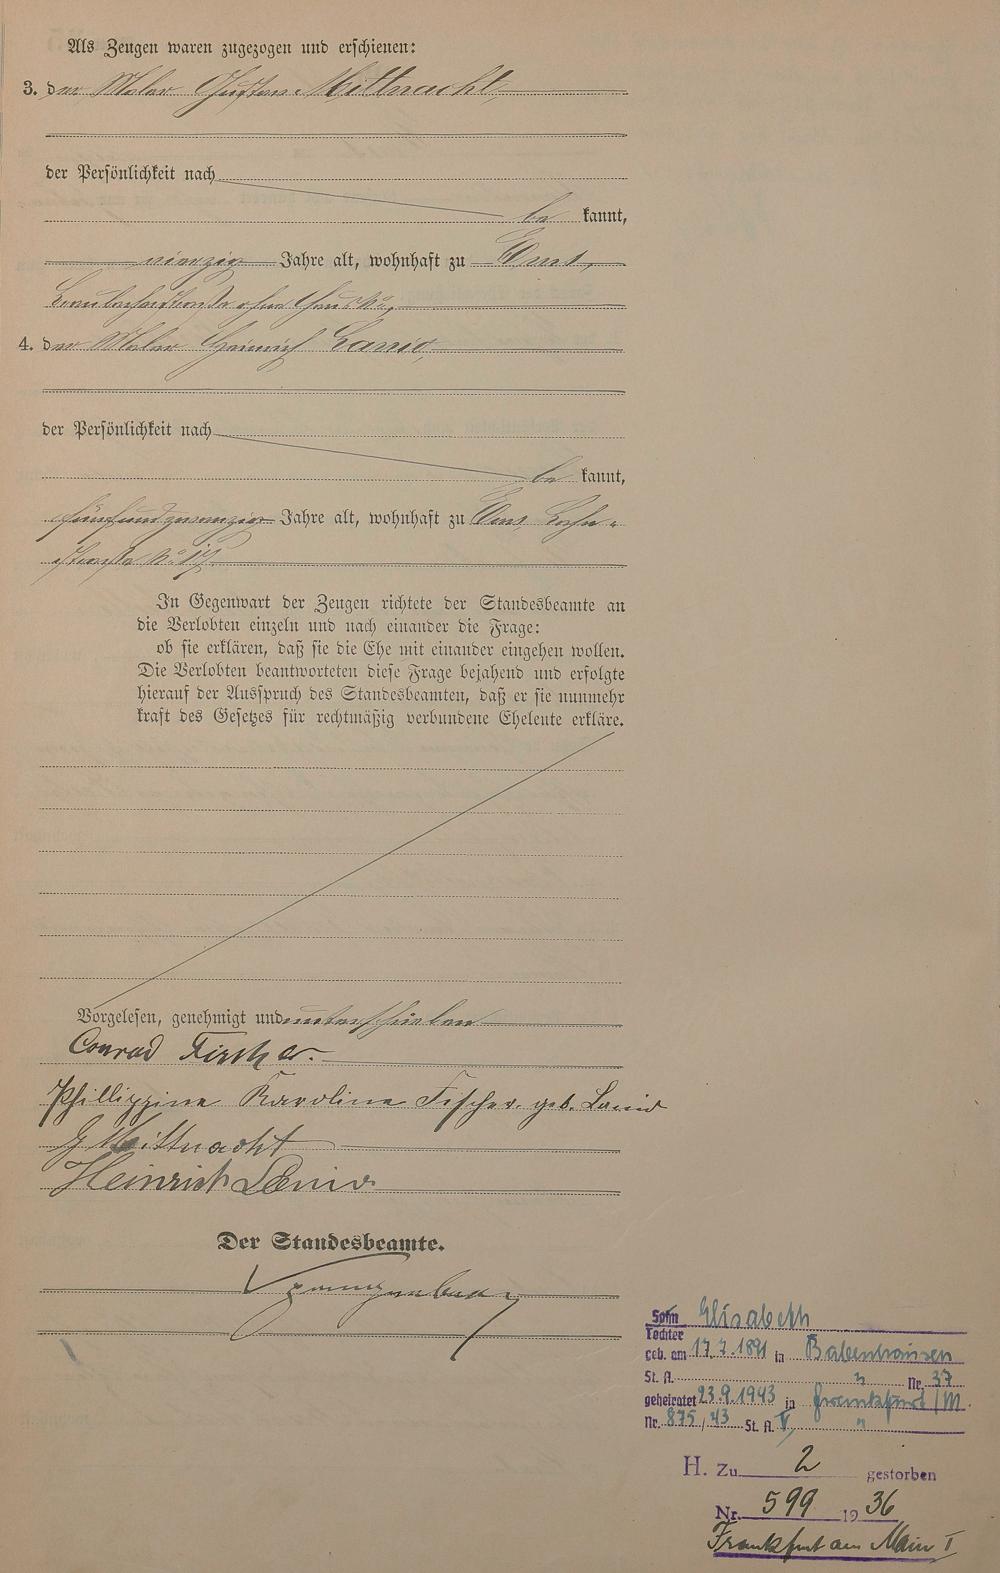 Als Zeugen waren zugezogen und erschienen:
3. der Maler Gustav Mittnacht,
der Persönlichkeit nach
be kannt,
vierzig Jahre alt, wohnhaft zu Ems,
4. der Maler Heinrich Lanio,
der Persönlichkeit nach
be kannt,
fünfundzwanzig Jahre alt, wohnhaft zu Ems, Lahn-
straße No 17.
In Gegenwart der Zeugen richtete der Standesbeamte an
die Verlobten einzeln und nach einander die Frage:
ob sie erklären, daß sie die Ehe mit einander eingehen wollen.
Die Verlobten beantworteten diese Frage bejahend und erfolgte
hierauf der Ausspruch des Standesbeamten, daß er sie nunmehr
kraft des Gesetzes für rechtmäßig verbundene Eheleute erkläre.
Vorgelesen, genehmigt und unterschrieben
Conrad Fischer.
Phillippine Karoline Fischer. geb. Lanio
G Mittnacht
Heinrich Lanio
Der Standesbeamte.
Sohn Elisabeth
Tochter
geb. am 17.7.1891 in Babenhausen
St. A. " Nr. 37
geheiratet 23.9.1943 in Frankfurt/M.
Nr. 875/43 St. A. V "
H. Zu 2 gestorben
Nr. 599 1936
Frankfurt am Main I